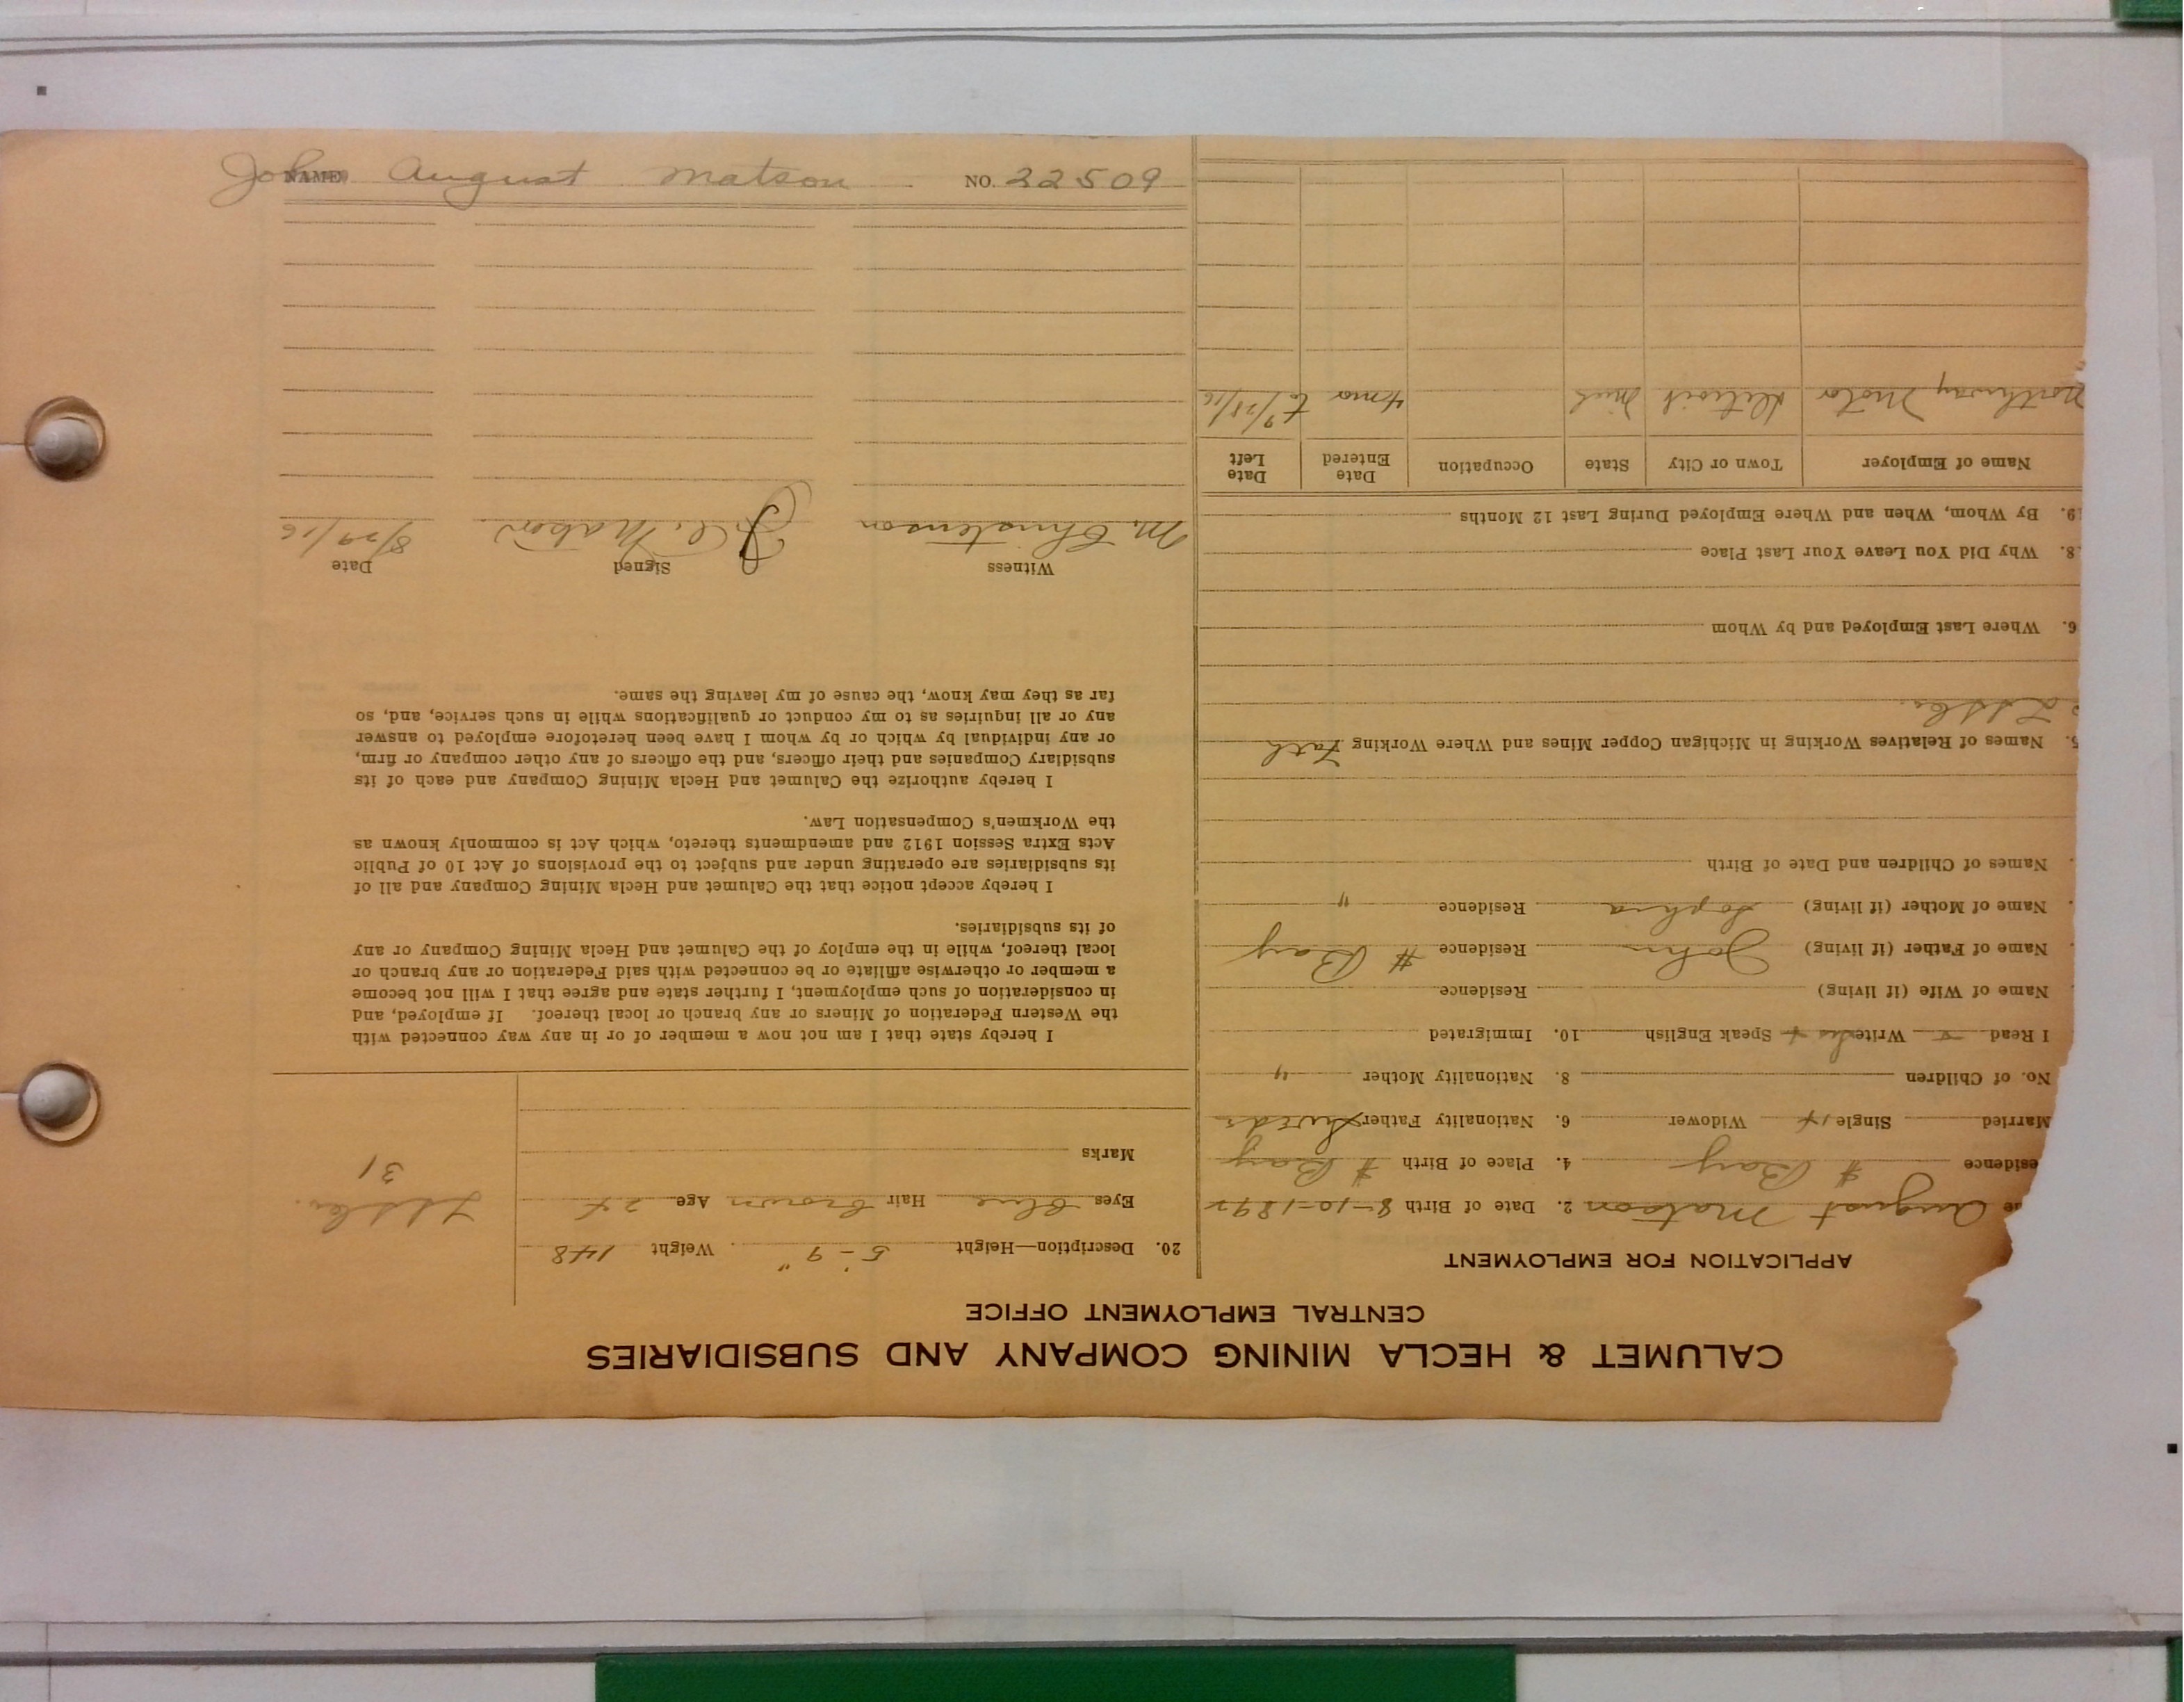 NAME John August Matson NO. 22509
CALUMET & HECLA MINING COMPANY AND SUBSIDIARIES
CENTRAL EMPLOYMENT OFFICE
APPLICATION FOR EMPLOYMENT
August Matson 2. Date of Birth 8-10-1892
esidence # Bay 4. Place of Birth # Bay
Married Single Widower 6. Nationality Father Swede
No. of Children 8. Nationality Mother "
I Read Write yes Speak English 10. Immigrated
Name of Wife (if living) Residence
Name of Father (if living) John Residence # Bay
Name of Mother (if living) Sophia Residence "
Names of Children and Date of Birth
5. Names of Relatives Working in Michigan Copper Mines and Where Working Fath
6. Where Last Employed and by Whom
8. Why Did You Leave Your Last Place
19. By Whom, When and Where Employed During Last 12 Months
Name of Employer Town or City State Occupation Date Entered Date Left
Northway Motor Detroit Mich 4 mos to
20. Description—Height 5'-9" Weight 148
Eyes Blue Hair brown Age 24
Marks
31
I hereby state that I am not now a member of or in any way connected with
the Western Federation of Miners or any branch or local thereof. If employed, and
in consideration of such employment, I further state and agree that I will not become
a member or otherwise affiliate or be connected with said Federation or any branch or
local thereof, while in the employ of the Calumet and Hecla Mining Company or any
of its subsidiaries.
I hereby accept notice that the Calumet and Hecla Mining Company and all of
its subsidiaries are operating under and subject to the provisions of Act 10 of Public
Acts Extra Session 1912 and amendments thereto, which Act is commonly known as
the Workmen's Compensation Law.
I hereby authorize the Calumet and Hecla Mining Company and each of its
subsidiary Companies and their officers, and the officers of any other company or firm,
or any individual by which or by whom I have been heretofore employed to answer
any or all inquiries as to my conduct or qualifications while in such service, and, so
far as they may know, the cause of my leaving the same.
Witness Signed Date
M. Christenson J. A. Matson 8/29/16